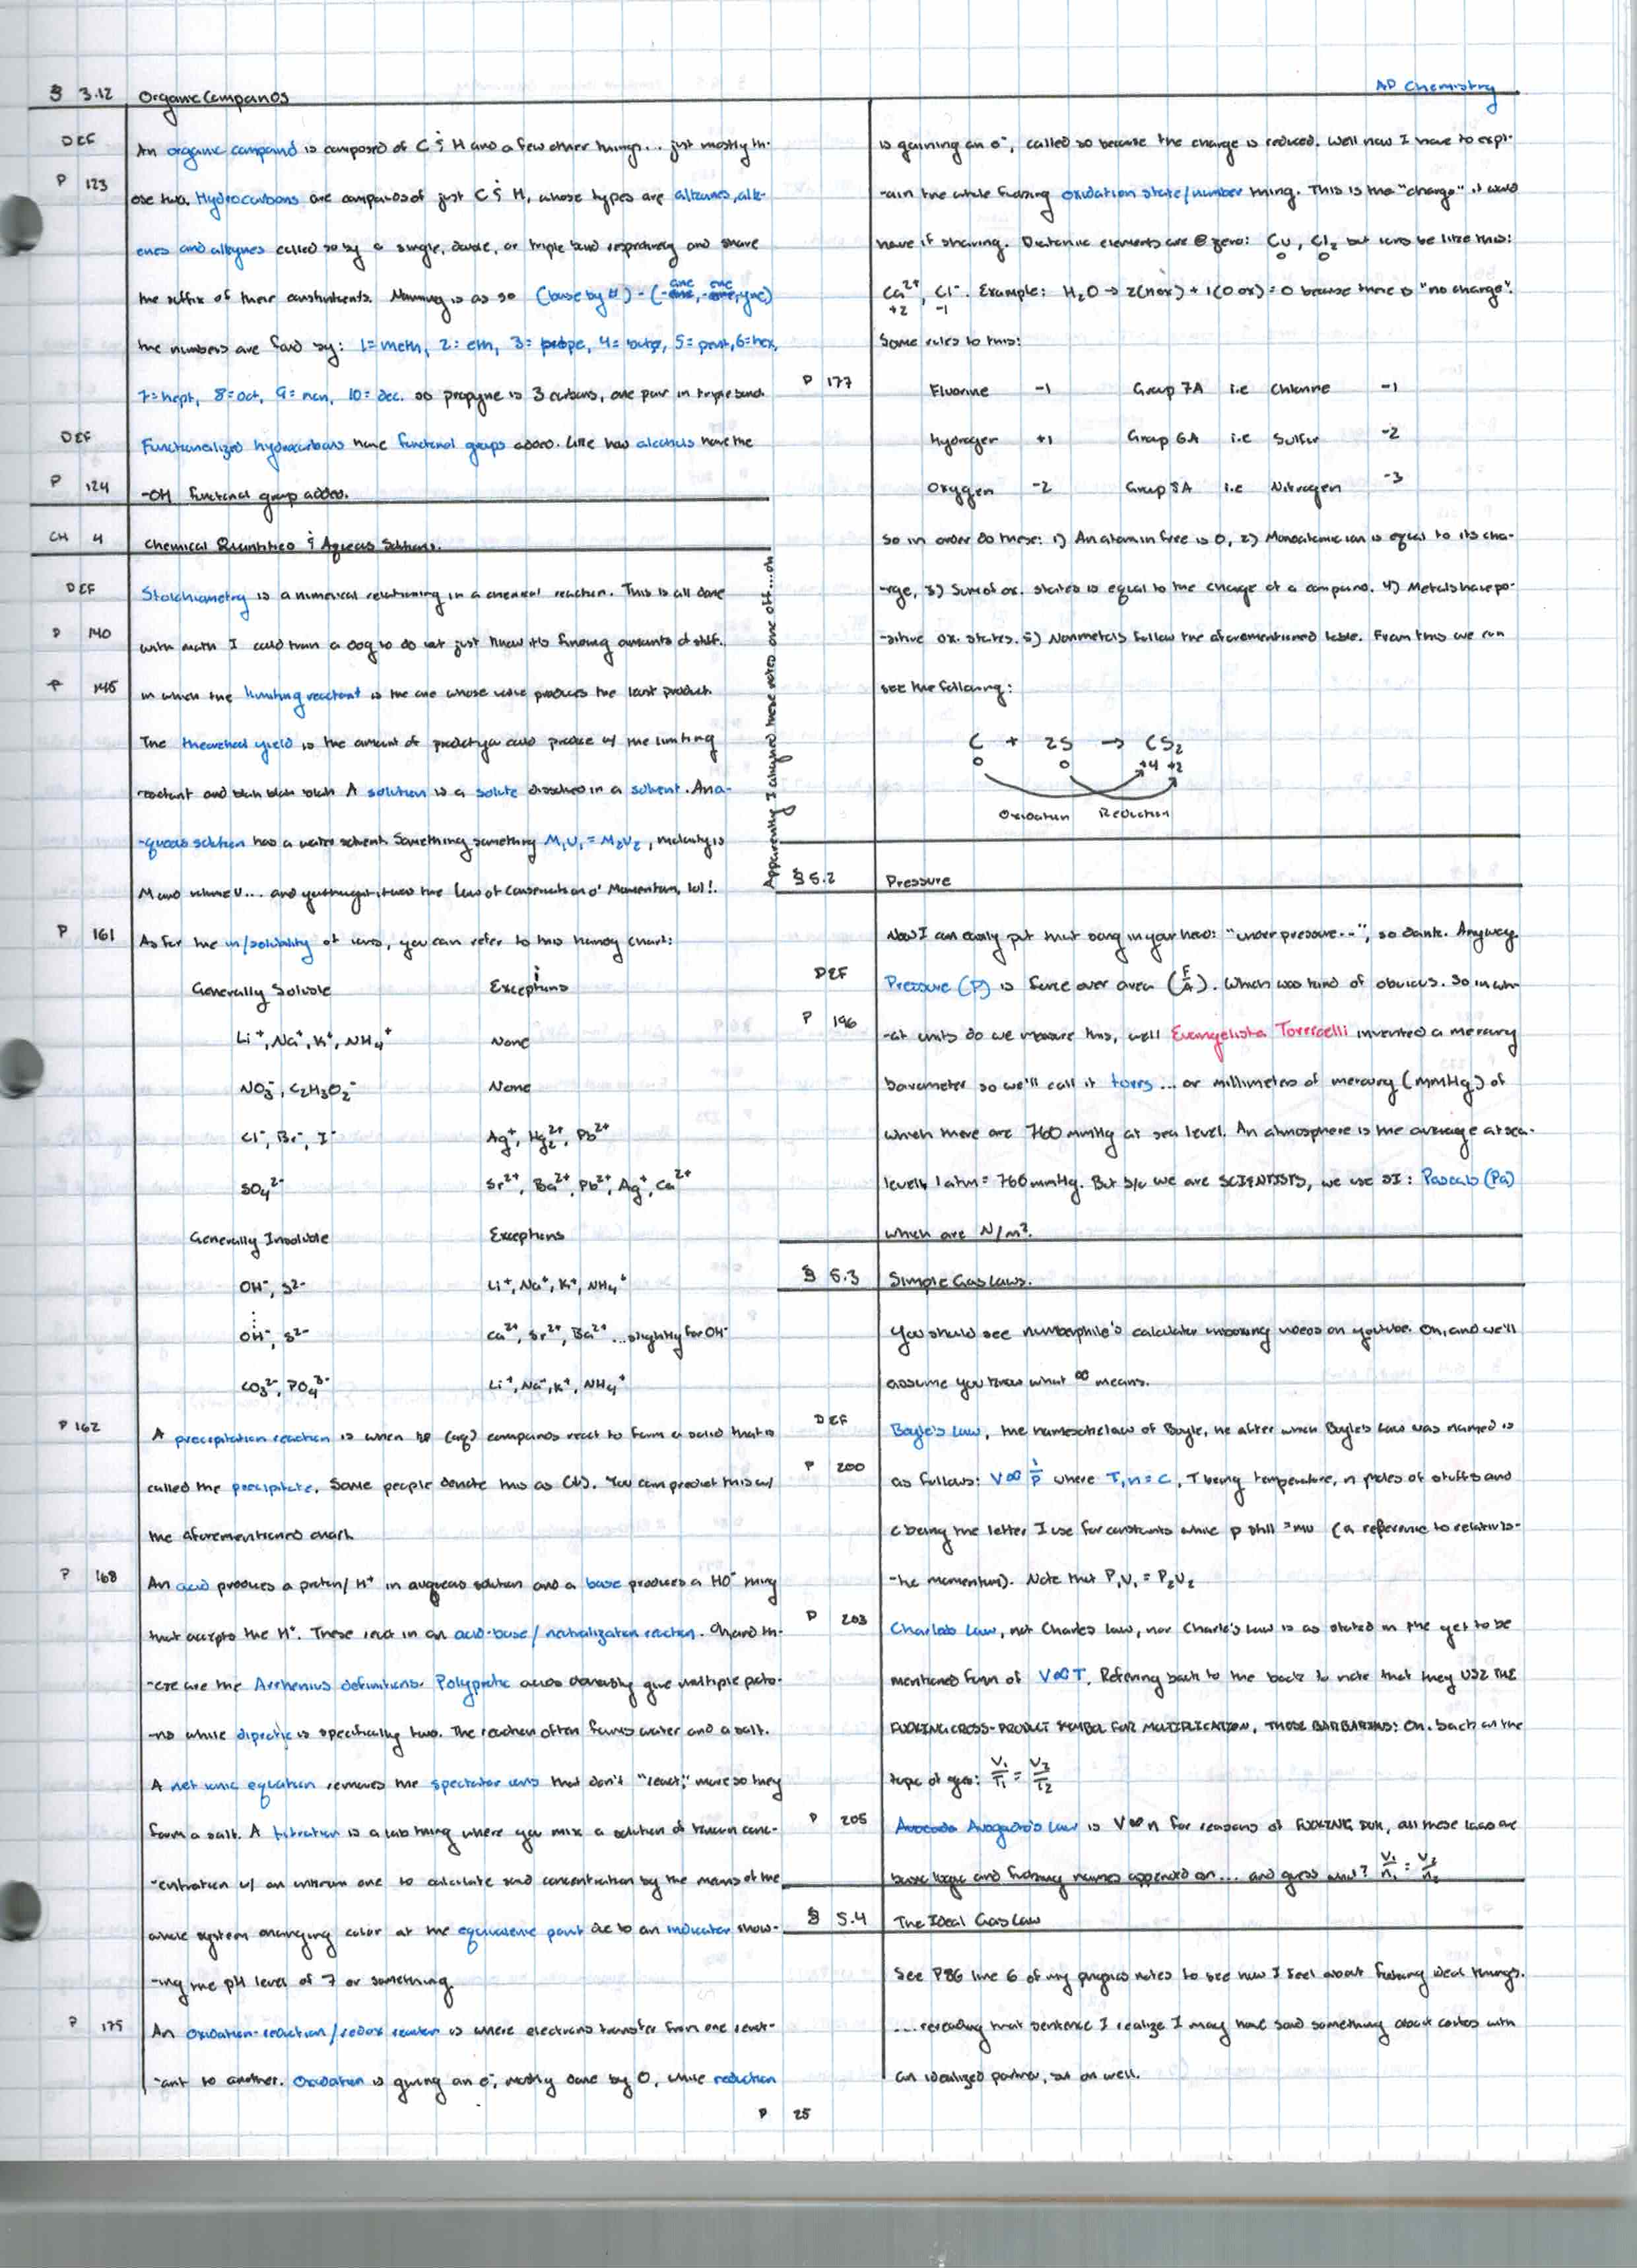 AP Chemistry
§ 3.12 Organic Compounds
DEF An organic compound is composed of C & H and a few other things... just mostly th-
P 123 ose two. Hydrocarbons are compounds of just C & H, whose types are alkanes, alk-
enes and alkynes called so by a single, double, or triple bond respectively and share
the suffix of their constituents. Naming is as so (base by #) - (-ane, -ene, yne)
the numbers are found by: 1=meth, 2=eth, 3=prope, 4=buty, 5=pent, 6=hex,
7=hept, 8=oct, 9=non, 10=dec. so propyne is 3 carbons, one pair in triple bond.
DEF Functionalized hydrocarbons have functional groups added. Like how alcohols have the
P 124 -OH functional group added.
CH 4 Chemical Quantities & Aqueous Solutions.
DEF Stoichiometry is a numerical relationing in a chemical reaction. This is all done
P 140 with math I could train a dog to do but just know it's finding amounts of stuff.
P 145 in which the limiting reactant is the one whose use produces the least product.
The theoretical yield is the amount of product you could produce w/ the limiting
reactant and blah blah blah A solution is a solute dissolved in a solvent. An a-
-queous solution has a water solvent. Something something M₁V₁=M₂V₂, molarity is
M and volume V... and you thought it was the law of conservation o' Momentum, lol!
P 161 As for the in/solubility of ions, you can refer to this handy chart:
Generally Soluble Exceptions
Li⁺, Na⁺, K⁺, NH₄⁺ None
NO₃⁻, C₂H₃O₂⁻ None
Cl⁻, Br⁻, I⁻ Ag⁺, Hg₂²⁺, Pb²⁺
SO₄²⁻ Sr²⁺, Ba²⁺, Pb²⁺, Ag⁺, Ca²⁺
Generally Insoluble Exceptions
OH⁻, S²⁻ Li⁺, Na⁺, K⁺, NH₄⁺
OH⁻, S²⁻ Ca²⁺, Sr²⁺, Ba²⁺ ...slightly for OH⁻
CO₃²⁻, PO₄³⁻ Li⁺, Na⁺, K⁺, NH₄⁺
P 162 A precipitation reaction is when (aq) compounds react to form a solid that is
called the precipitate. Some people denote this as (↓). You can predict this w/
the aforementioned chart.
P 168 An acid produces a proton/H⁺ in auqeous solution and a base produces a HO⁻ thing
that accepts the H⁺. These react in an acid-base/neutralization reaction. Oh and th-
-ese are the Arrhenius definitions. Polyprotic acids give multiple proto-
-ns while diprotic is specifically two. The reaction often forms water and a salt.
A net ionic equation removes the spectator ions that don't "react," more so they
form a salt. A titration is a lab thing where you mix a solution of known conc-
-entration w/ an unknown one to calculate said concentration by the means of the
whole system changing color at the equivalence point due to an indicator show-
-ing the pH level of 7 or something.
P 175 An oxidation-reduction/redox reaction is where electrons transfer from one react-
-ant to another. Oxidation is giving an e⁻, mostly done by O, while reduction
Apparently I aligned these notes one off...oh
is gaining an e⁻, called so because the charge is reduced. Well now I have to expl-
-ain the whole fucking oxidation state/number thing. This is the "charge" it would
have if sharing. Diatomic elements are @ zero: Cu, Cl₂ but ions be like this:
0 0
Ca²⁺, Cl⁻. Example: H₂O → 2(H ox) + 1(O ox) = 0 because there is "no charge".
+2 -1
Some rules to this:
P 177 Fluorine -1 Group 7A i.e Chlorine -1
Hydrogen +1 Group 6A i.e Sulfur -2
Oxygen -2 Group 5A i.e Nitrogen -3
So in order do these: 1) An atom in free is 0, 2) Monoatomic ion is equal to its cha-
-rge, 3) Sum of ox. states is equal to the charge of a compound. 4) Metals have po-
-sitive ox. states. 5) Nonmetals follow the aforementioned table. From this we can
see the following:
C + 2S → CS₂
0 0 +4 +2
Oxidation Reduction
§ 5.2 Pressure
Now I can easily put that song in your head: "under pressure..", so dank. Anyway.
DEF Pressure (P) is force over area (F/A). Which was kind of obvious. So in wh-
P 196 -at units do we measure this, well Evangelista Torricelli invented a mercury
barometer so we'll call it torrs ... or millimeters of mercury (mmHg) of
which there are 760 mmHg at sea level. An atmosphere is the average at sea-
level, 1 atm = 760 mmHg. But b/c we are SCIENTISTS, we use SI: Pascals (Pa)
which are N/m².
§ 5.3 Simple Gas Laws.
You should see numberphile's calculator unboxing videos on youtube. Oh, and we'll
assume you know what ∝ means.
DEF Boyle's Law, the namesake law of Boyle, he after whom Boyle's Law was named is
P 200 as follows: V ∝ 1/P where T, n = c, T being temperature, n moles of stuffs and
c being the letter I use for constants while p still =mv (a reference to relativis-
-tic momentum). Note that P₁V₁ = P₂V₂
P 203 Charles Law, not Charles law, nor Charle's law is as stated in the yet to be
mentioned form of V ∝ T. Refering back to the back to note that they USE THE
FUCKING CROSS-PRODUCT SYMBOL FOR MULTIPLICATION, THOSE BARBARIANS! Oh. back on the
topic of gas: V₁/T₁ = V₂/T₂
P 205 Avocado Avogadro's Law is V ∝ n for reasons of FUCKING DUH, all these laws are
basic logic and fucking names appended on... and guess what? V₁/n₁ = V₂/n₂
§ 5.4 The Ideal Gas Law
See P86 line 6 of my physics notes to see how I feel about fucking ideal things.
...rereading that sentence I realize I may have said something about coitus with
an idealized partner, but oh well.
P 25